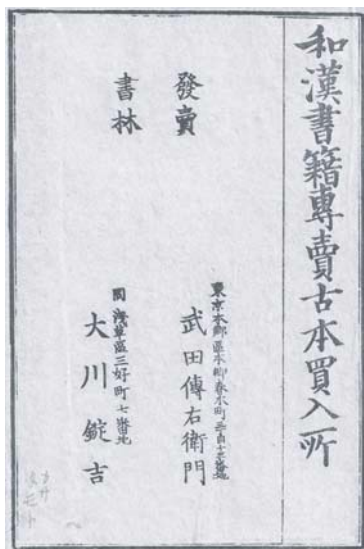 和漢書籍專賣古本買入所
發賣
書林
東京本郷區本郷春木町
武田傳右衛門
同淺草區三好町七番地
大川錠吉